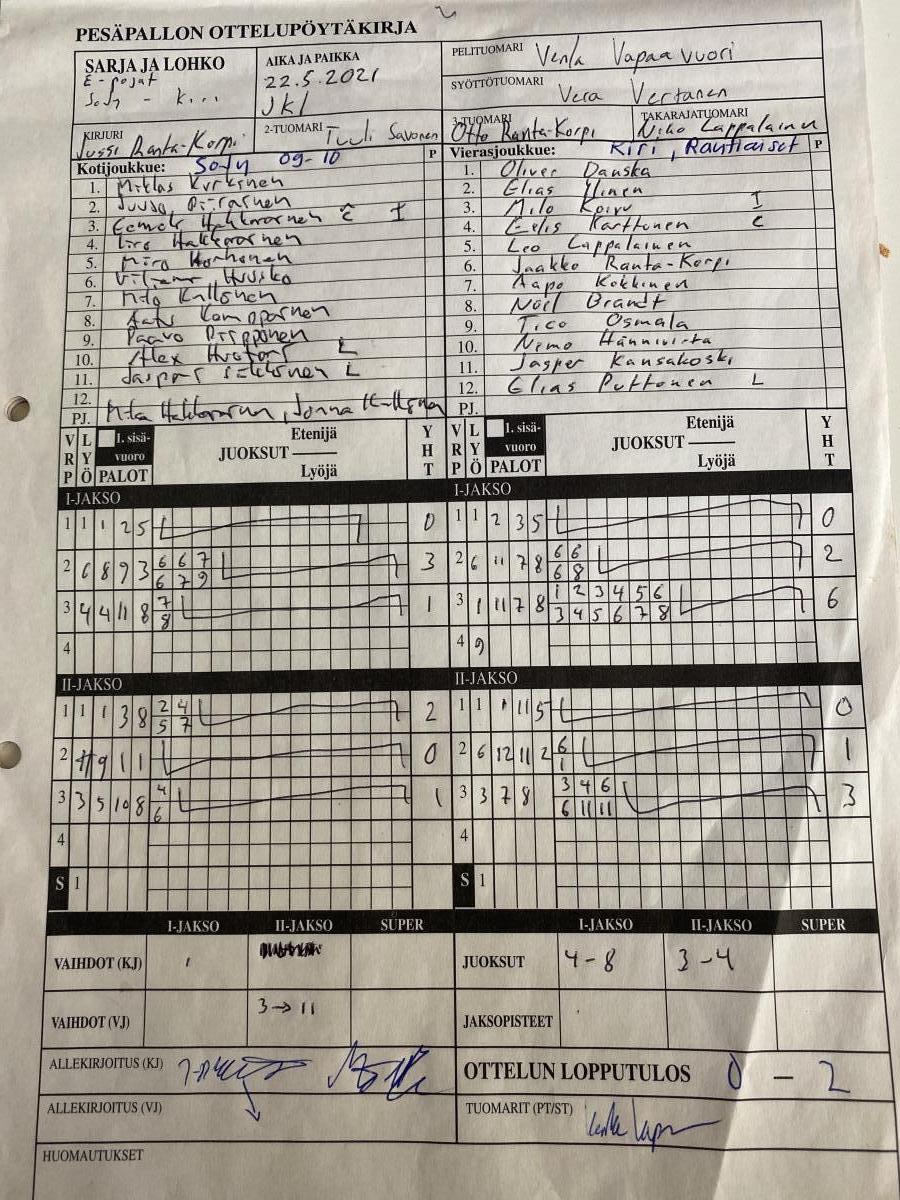 PESÄPALLON OTTELUPÖYTÄKIRJA
SARJA JA LOHKO
E-pojat
AIKA JA PAIKKA
22.5.2021
Jkl
PELITUOMARI Venla Vapaavuori
SYÖTTÖTUOMARI Vera Vertanen
KIRJURI Jussi Ranta-Korpi
2-TUOMARI Tuuli Savonen
3-TUOMARI Otto Ranta-Korpi
TAKARAJATUOMARI Niko Lappalainen
Kotijoukkue: SoJy 09-10 P
1. Miklas Kurkinen
2.
3. C I
4.
5. Miro Korhonen
6.
7.
8.
9.
10. L
11. L
12.
PJ.
Vierasjoukkue: Kiri, Rautiaiset P
1. Oliver Danska
2. Elias Ilinen
3. Milo Koivu I
4. Eelis Karttunen C
5. Leo Lappalainen
6. Jaakko Ranta-Korpi
7. Aapo Kokkinen
8. Noel Brandt
9. Tico Osmala
10. Nemo Hännivirta
11. Jasper Kansakoski
12. Elias Puttonen L
PJ.
VRP LYÖ 1. sisävuoro PALOT JUOKSUT Etenijä Lyöjä YHT
VRP LYÖ 1. sisävuoro PALOT JUOKSUT Etenijä Lyöjä YHT
I-JAKSO
1 1 1 2 5 0
2 6 8 9 3 6 6 7 3
6 7 9
3 4 4 11 8 7 1
8
4
I-JAKSO
1 1 2 3 5 0
2 6 11 7 8 6 6 2
6 8
3 1 11 7 8 1 2 3 4 5 6 6
3 4 5 6 7 8
4 9
II-JAKSO
1 1 1 3 8 2 4 2
5 7
2 9 1 1 0
3 3 5 10 8 4 1
6
4
S 1
II-JAKSO
1 1 1 11 5 0
2 6 12 11 2 6 1
1
3 3 7 8 3 4 6 3
6 11 11
4
S 1
I-JAKSO II-JAKSO SUPER
VAIHDOT (KJ)
VAIHDOT (VJ) 3→11
I-JAKSO II-JAKSO SUPER
JUOKSUT 4-8 3-4
JAKSOPISTEET
ALLEKIRJOITUS (KJ)
OTTELUN LOPPUTULOS 0 - 2
ALLEKIRJOITUS (VJ)
TUOMARIT (PT/ST)
HUOMAUTUKSET